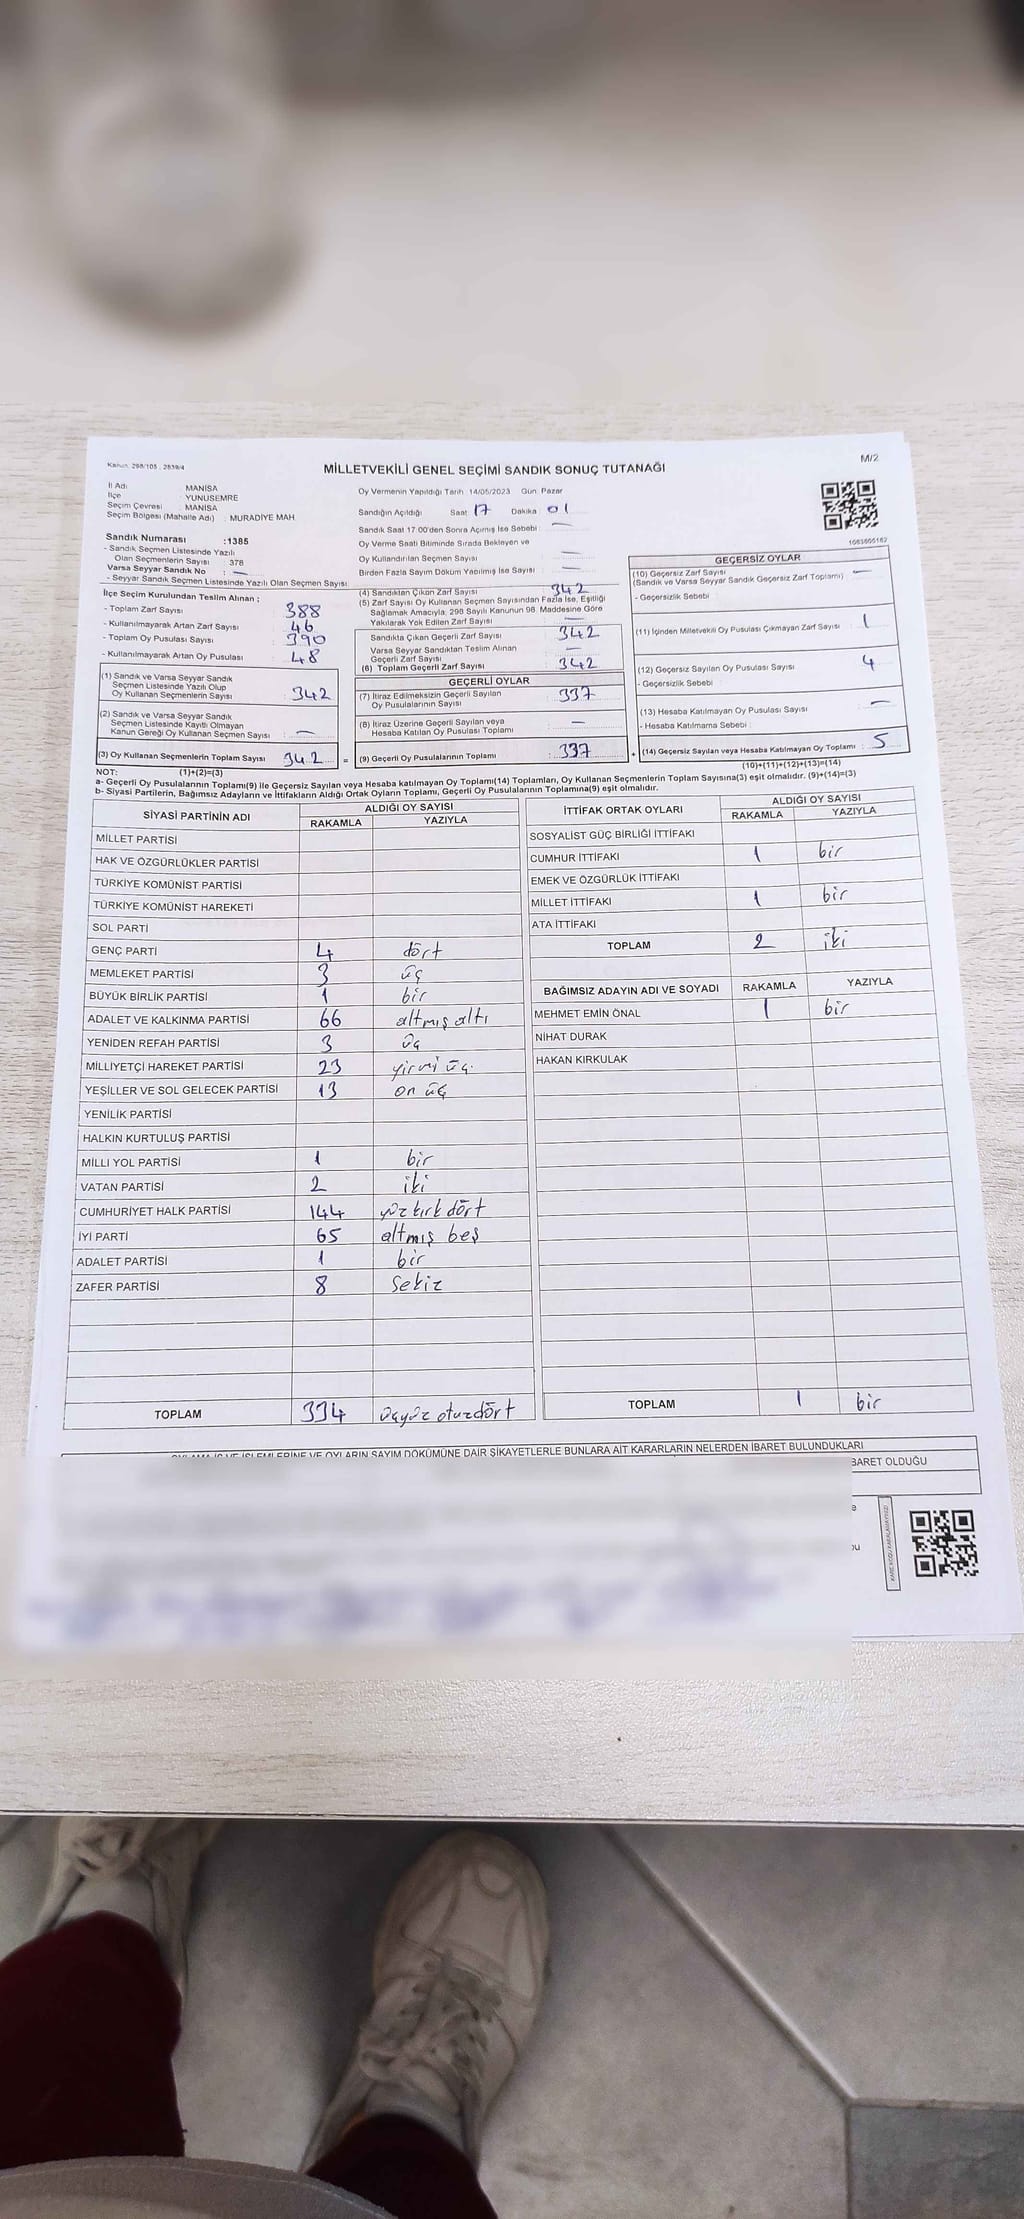 Kanun 298/105 , 2839/4
MİLLETVEKİLİ GENEL SEÇİMİ SANDIK SONUÇ TUTANAĞI
M/2
İl Adı : MANİSA
İlçe : YUNUSEMRE
Seçim Çevresi : MANİSA
Seçim Bölgesi (Mahalle Adı) : MURADİYE MAH.
Oy Vermenin Yapıldığı Tarih 14/05/2023 Gün Pazar
Sandığın Açıldığı Saat 17 Dakika 01
Sandık Saat 17:00'den Sonra Açılmış İse Sebebi : —
Oy Verme Saati Bitiminde Sırada Bekleyen ve
Oy Kullandırılan Seçmen Sayısı —
Birden Fazla Sayım Döküm Yapılmış İse Sayısı —
Sandık Numarası :1385
- Sandık Seçmen Listesinde Yazılı
Olan Seçmenlerin Sayısı : 378
Varsa Seyyar Sandık No : —
- Seyyar Sandık Seçmen Listesinde Yazılı Olan Seçmen Sayısı:
İlçe Seçim Kurulundan Teslim Alınan ;
- Toplam Zarf Sayısı 388
- Kullanılmayarak Artan Zarf Sayısı 46
- Toplam Oy Pusulası Sayısı 390
- Kullanılmayarak Artan Oy Pusulası 48
(1) Sandık ve Varsa Seyyar Sandık
Seçmen Listesinde Yazılı Olup
Oy Kullanan Seçmenlerin Sayısı 342
(2) Sandık ve Varsa Seyyar Sandık
Seçmen Listesinde Kayıtlı Olmayan
Kanun Gereği Oy Kullanan Seçmen Sayısı : —
(3) Oy Kullanan Seçmenlerin Toplam Sayısı 342
(1)+(2)=(3)
(4) Sandıktan Çıkan Zarf Sayısı 342
(5) Zarf Sayısı Oy Kullanan Seçmen Sayısından Fazla İse, Eşitliği
Sağlamak Amacıyla, 298 Sayılı Kanunun 98. Maddesine Göre
Yakılarak Yok Edilen Zarf Sayısı —
Sandıkta Çıkan Geçerli Zarf Sayısı 342
Varsa Seyyar Sandıktan Teslim Alınan
Geçerli Zarf Sayısı —
(6) Toplam Geçerli Zarf Sayısı 342
GEÇERLİ OYLAR
(7) İtiraz Edilmeksizin Geçerli Sayılan
Oy Pusulalarının Sayısı 337
(8) İtiraz Üzerine Geçerli Sayılan veya
Hesaba Katılan Oy Pusulalarının Toplamı —
= (9) Geçerli Oy Pusulalarının Toplamı 337 +
1083605162
GEÇERSİZ OYLAR
(10) Geçersiz Zarf Sayısı —
(Sandık ve Varsa Seyyar Sandık Geçersiz Zarf Toplamı)
- Geçersizlik Sebebi
(11) İçinden Milletvekili Oy Pusulası Çıkmayan Zarf Sayısı 1
(12) Geçersiz Sayılan Oy Pusulası Sayısı 4
- Geçersizlik Sebebi
(13) Hesaba Katılmayan Oy Pusulası Sayısı —
- Hesaba Katılmama Sebebi
(14) Geçersiz Sayılan veya Hesaba Katılmayan Oy Toplamı : 5
(10)+(11)+(12)+(13)=(14)
NOT:
a- Geçerli Oy Pusulalarının Toplamı(9) ile Geçersiz Sayılan veya Hesaba katılmayan Oy Toplamı(14) Toplamları, Oy Kullanan Seçmenlerin Toplam Sayısına(3) eşit olmalıdır. (9)+(14)=(3)
b- Siyasi Partilerin, Bağımsız Adayların ve İttifakların Aldığı Ortak Oyların Toplamı, Geçerli Oy Pusulalarının Toplamına(9) eşit olmalıdır.
SİYASİ PARTİNİN ADI
ALDIĞI OY SAYISI
RAKAMLA YAZIYLA
MİLLET PARTİSİ
HAK VE ÖZGÜRLÜKLER PARTİSİ
TÜRKİYE KOMÜNİST PARTİSİ
TÜRKİYE KOMÜNİST HAREKETİ
SOL PARTİ
GENÇ PARTİ 4 dört
MEMLEKET PARTİSİ 3 üç
BÜYÜK BİRLİK PARTİSİ 1 bir
ADALET VE KALKINMA PARTİSİ 66 altmış altı
YENİDEN REFAH PARTİSİ 3 üç
MİLLİYETÇİ HAREKET PARTİSİ 23 yirmi üç.
YEŞİLLER VE SOL GELECEK PARTİSİ 13 on üç
YENİLİK PARTİSİ
HALKIN KURTULUŞ PARTİSİ
MİLLİ YOL PARTİSİ 1 bir
VATAN PARTİSİ 2 iki
CUMHURİYET HALK PARTİSİ 144 yüz kırk dört
İYİ PARTİ 65 altmış beş
ADALET PARTİSİ 1 bir
ZAFER PARTİSİ 8 sekiz
TOPLAM 334 üçyüz otuzdört
İTTİFAK ORTAK OYLARI
ALDIĞI OY SAYISI
RAKAMLA YAZIYLA
SOSYALİST GÜÇ BİRLİĞİ İTTİFAKI
CUMHUR İTTİFAKI 1 bir
EMEK VE ÖZGÜRLÜK İTTİFAKI
MİLLET İTTİFAKI 1 bir
ATA İTTİFAKI
TOPLAM 2 iki
BAĞIMSIZ ADAYIN ADI VE SOYADI RAKAMLA YAZIYLA
MEHMET EMİN ÖNAL 1 bir
NİHAT DURAK
HAKAN KIRKULAK
TOPLAM 1 bir
OYLAMA İŞ VE İŞLEMLERİNE VE OYLARIN SAYIM DÖKÜMÜNE DAİR ŞİKAYETLERLE BUNLARA AİT KARARLARIN NELERDEN İBARET BULUNDUKLARI
BARET OLDUĞU